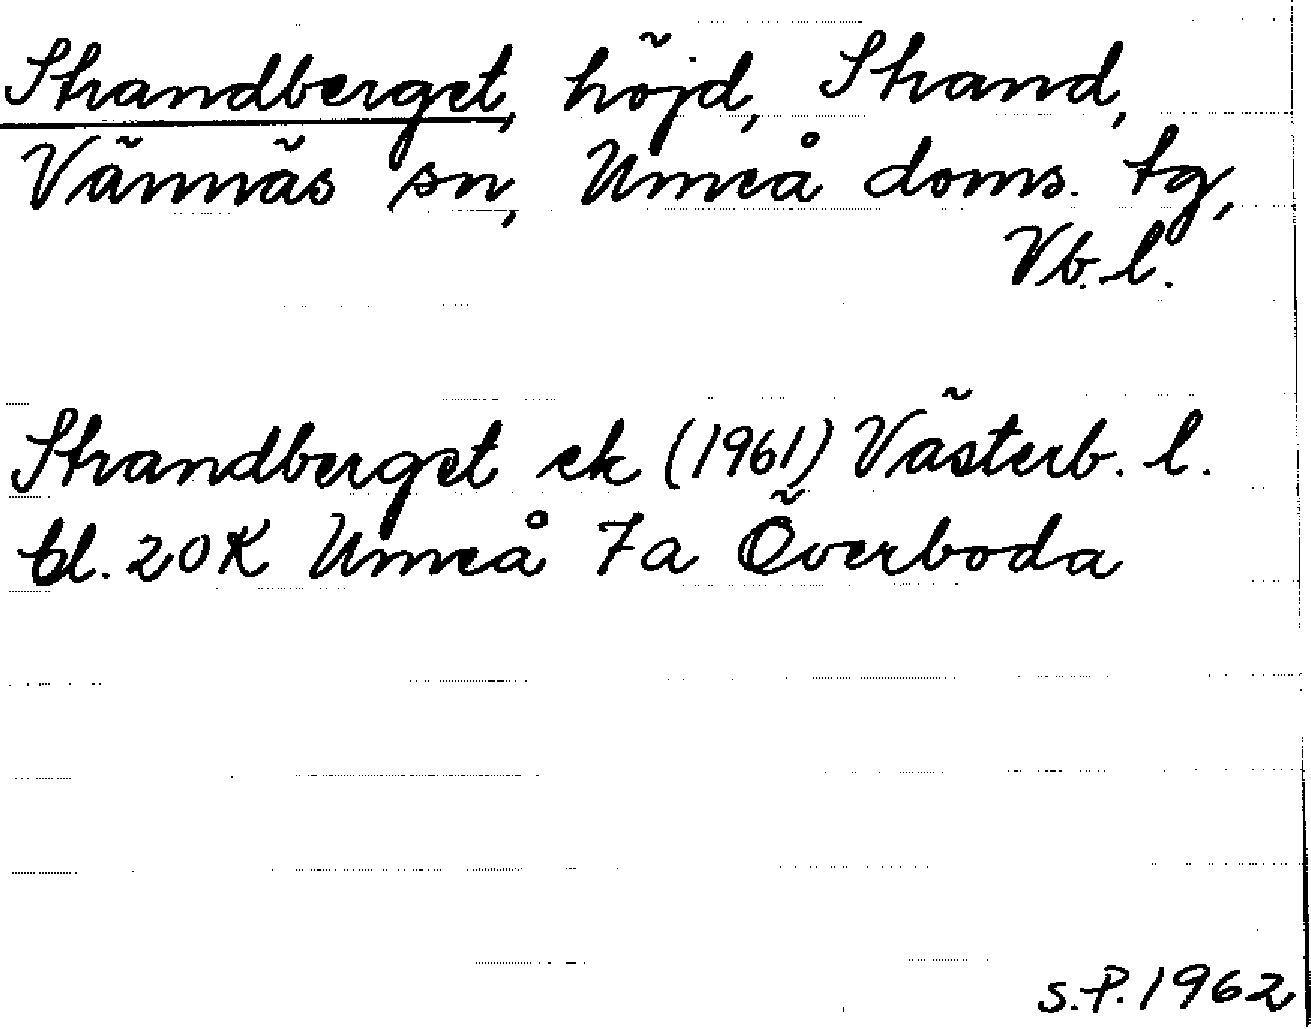 Strandberget, höjd, Strand,
Vännäs sn, Umeå doms. tg,
Vb. l.
Strandberget ek (1961) Västerb. l.
bl. 20K Umeå 7a Överboda
S.P. 1962